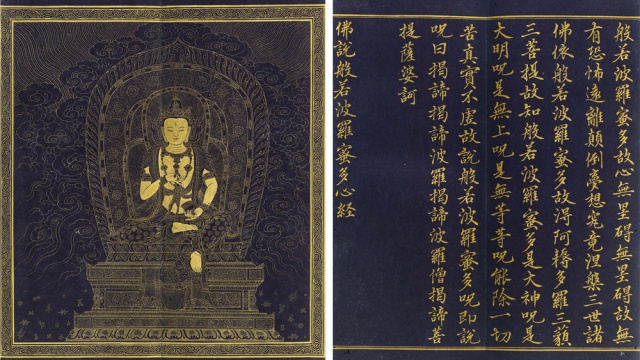 般若波羅蜜多故心無罣碍無罣碍故無
有恐怖遠離顛倒夢想究竟涅槃三世諸
佛依般若波羅蜜多故得阿耨多羅三藐
三菩提故知般若波羅蜜多是大神呪是
大明呪是無上呪是無等等呪能除一切
苦真實不虛故說般若波羅蜜多呪即說
呪曰揭諦揭諦波羅揭諦波羅僧揭諦菩
提薩婆訶
佛說般若波羅蜜多心経